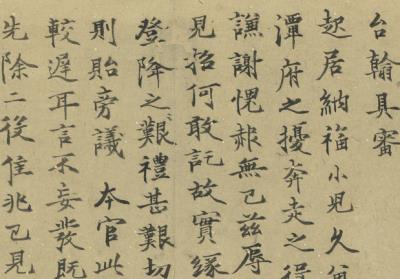 台翰具審
起居納福小兒久
潭府之擾奔走之
謙謝愧赧無已茲辱
見招何敢託故實緣
登降之艱禮甚艱切
則貽旁議 本官此
較遲耳言不妄發既
先除二後佳兆已見